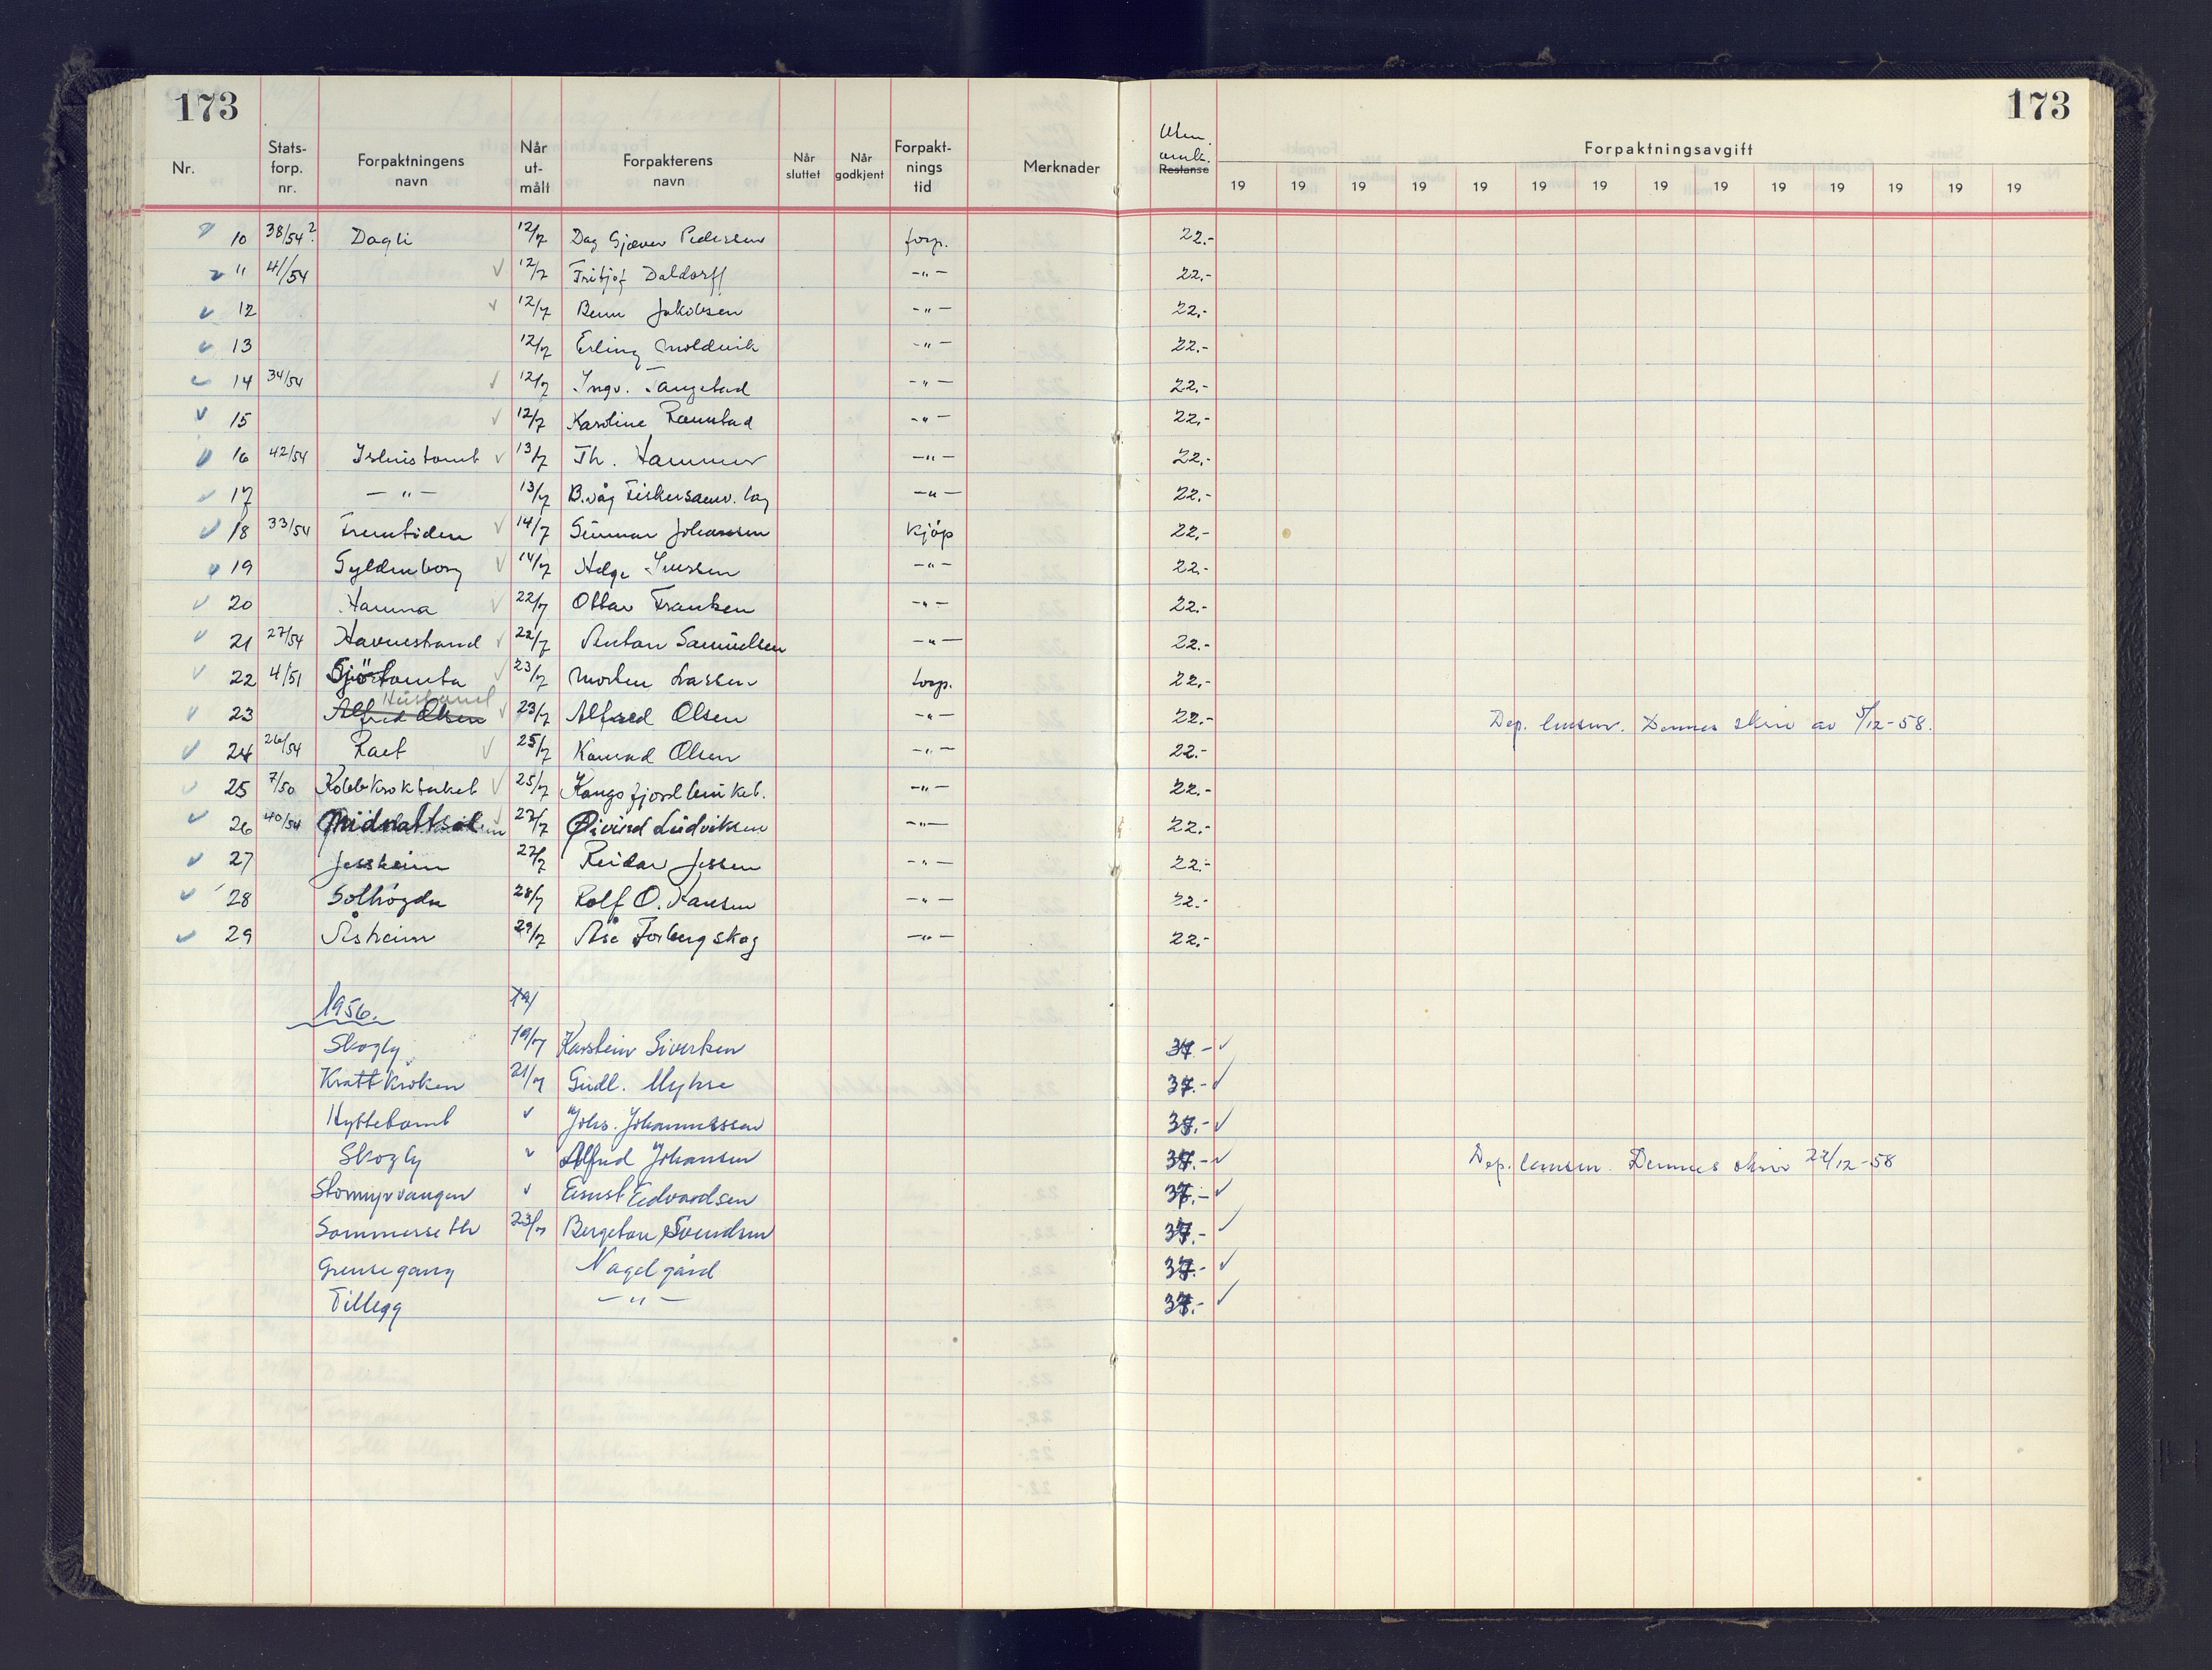 173
173
Nr.
Stats-forp. nr.
Forpaktningens navn
Når ut-målt
Forpakterens navn
Når sluttet
Når godkjent
Forpakt-nings tid
Merknader
Restanse
Forpaktningsavgift
19 19 19 19 19 19 19 19 19 19 19 19 19 19
10 38/54? Dagli 12/7 Dag Gjæver Pedersen forp. 22.-
" 41/54 12/7 Fritjof Daldorff -"- 22.-
12 12/7 Benn Jakobsen -"- 22.-
13 12/7 Erling Moldvik -"- 22.-
14 34/54 12/7 Ingv. Tangstad -"- 22.-
15 12/7 Karoline Ramstad -"- 22.-
16 42/54 Ishustomt 13/7 Th. Hammer -"- 22.-
17 -"- 13/7 B.våg Fiskersamv. lag -"- 22.-
18 33/54 Fremtiden 14/7 Gunnar Johansen kjöp 22.-
19 Gyldenborg 14/7 Helge Iversen -"- 22.-
20 Hamna 22/7 Ottar Frantzen -"- 22.-
21 27/54 Havnestrand 22/7 Anton Samuelsen -"- 22.-
22 4/51 Sjötomta 23/7 Morten Larssen forp. 22.-
23 Alfred Olsen Hustomt 23/7 Alfred Olsen -"- 22.- Dep. lensm. Dennes skriv av 5/12-58.
24 26/54 Raet 25/7 Konrad Olsen -"- 22.-
25 7/50 Kobbkroktaket 25/7 Kongsfjord -"- 22.-
26 40/54 Midnattsol 27/7 Øivind Ludviksen -"- 22.-
27 Jessheim 27/7 Reidar Jessen -"- 22.-
28 Solhögda 28/7 Rolf O. Hansen -"- 22.-
29 Åsheim 29/7 Åse Forbergskog -"- 22.-
1956. 19/
Skogly 19/7 Karstein Sivertsen 37.-
Krattkroken 21/7 Gudl. Myhre 37.-
Hyttetomt " Johs. Johannessen 37.-
Skogly " Alfred Johansen 37.- Dep. lensm. Dennes skriv 22/12-58
Stormyrvangen " Ernst Edvardsen 37.-
Sommerseth 23/7 Bergeton Svendsen 37.-
Grensegang Nagelgård 37.-
Tillegg -"- 37.-